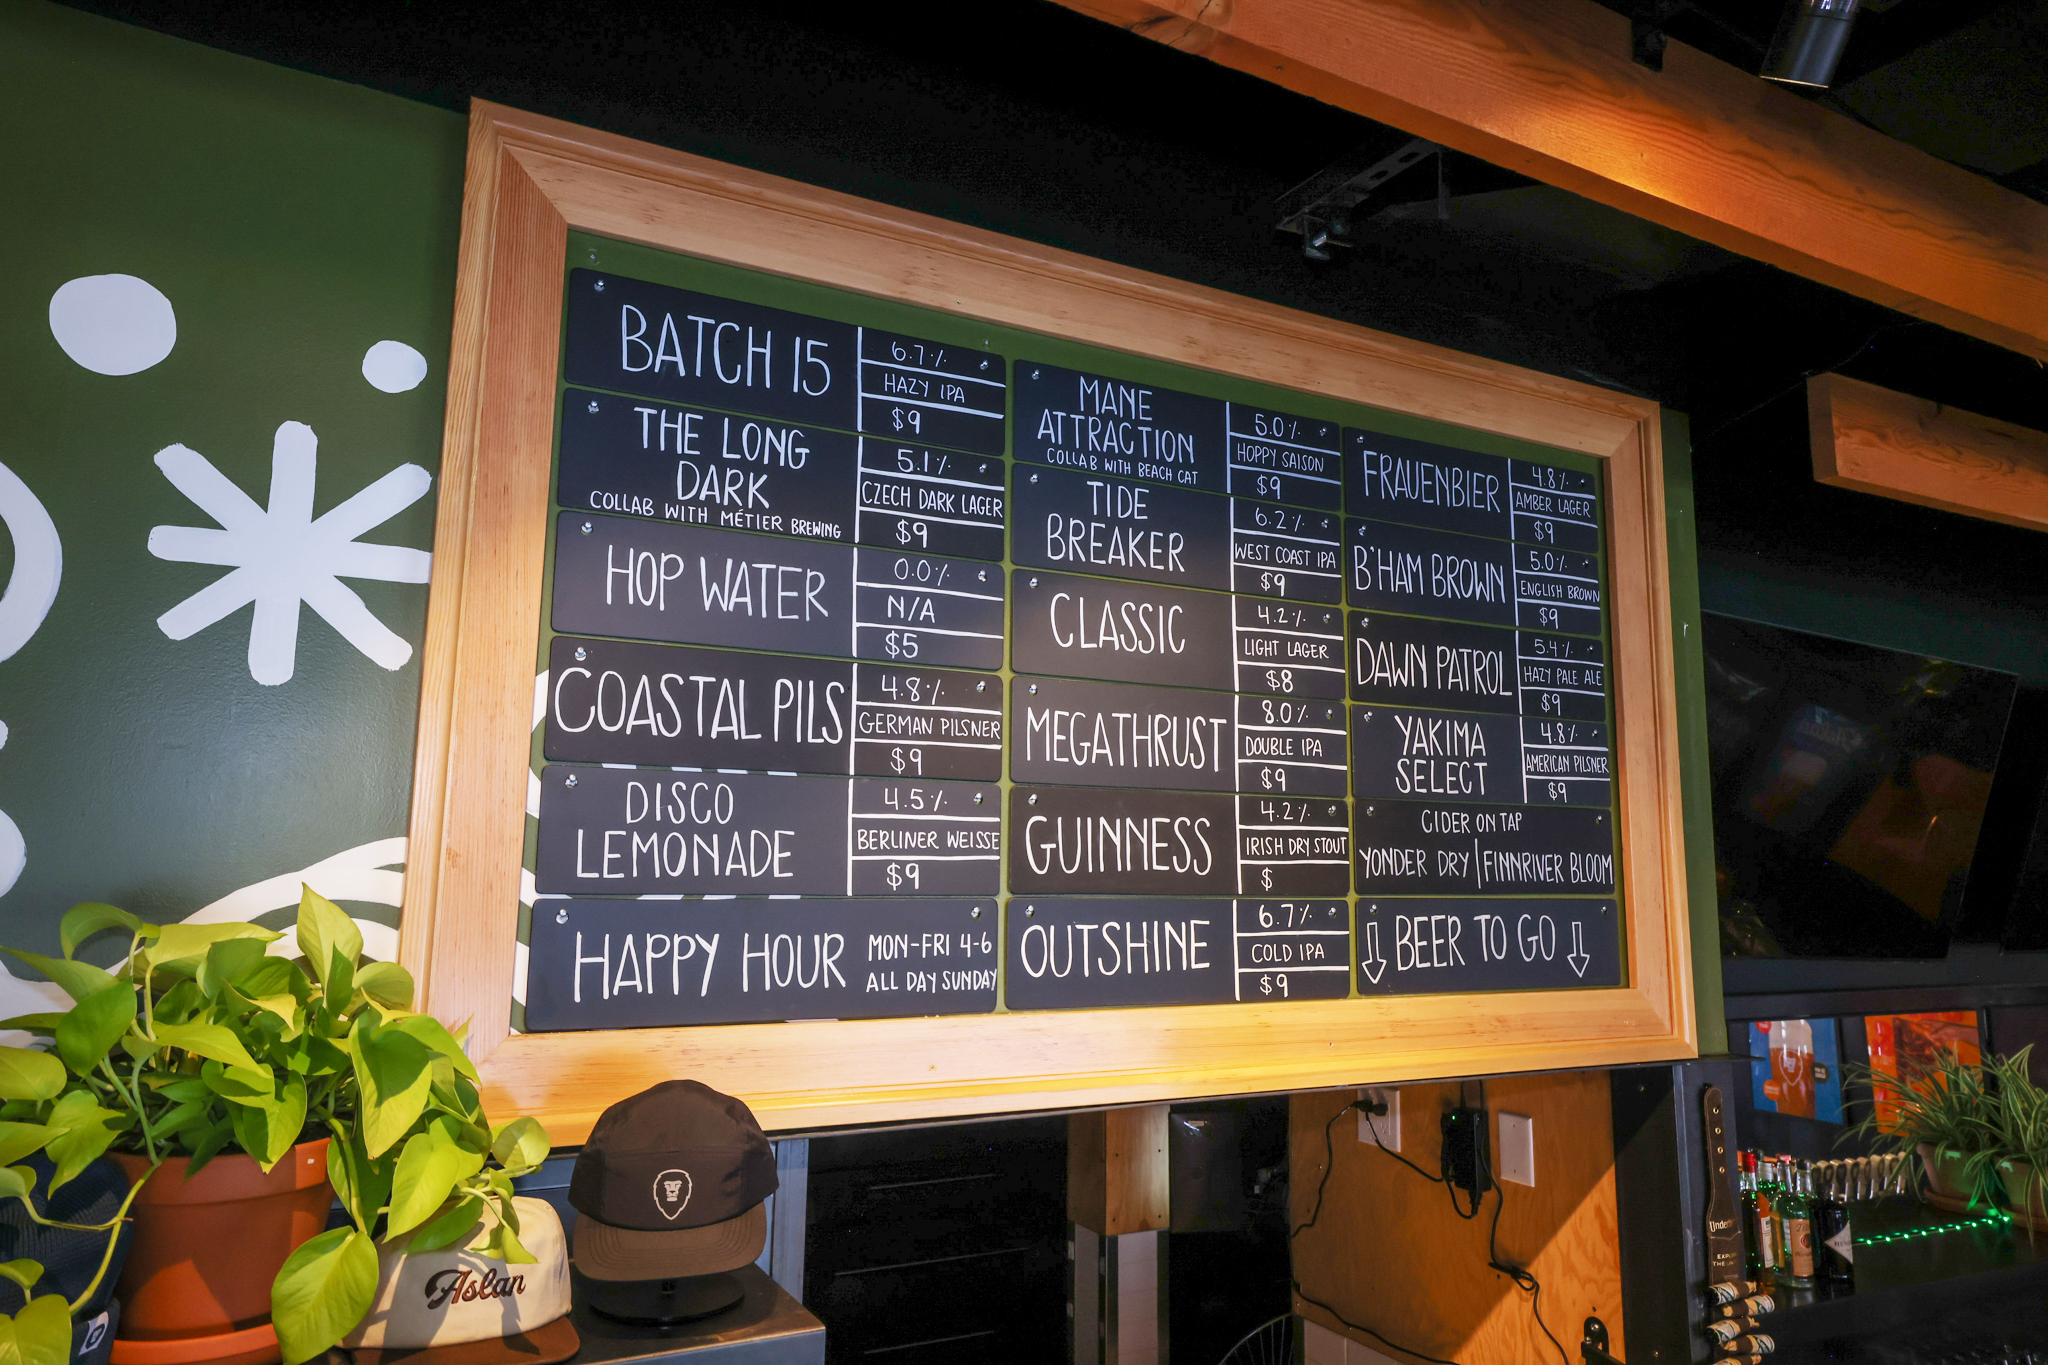 BATCH 15
6.7%
HAZY IPA
$9
THE LONG
DARK
COLLAB WITH MÉTIER BREWING
5.1%
CZECH DARK LAGER
$9
HOP WATER
0.0%
N/A
$5
COASTAL PILS
4.8%
GERMAN PILSNER
$9
DISCO
LEMONADE
4.5%
BERLINER WEISSE
$9
HAPPY HOUR
MON-FRI 4-6
ALL DAY SUNDAY
MANE
ATTRACTION
COLLAB WITH BEACH CAT
5.0%
HOPPY SAISON
$9
TIDE
BREAKER
6.2%
WEST COAST IPA
$9
CLASSIC
4.2%
LIGHT LAGER
$8
MEGATHRUST
8.0%
DOUBLE IPA
$9
GUINNESS
4.2%
IRISH DRY STOUT
$
OUTSHINE
6.7%
COLD IPA
$9
FRAUENBIER
4.8%
AMBER LAGER
$9
B'HAM BROWN
5.0%
ENGLISH BROWN
$9
DAWN PATROL
5.4%
HAZY PALE ALE
$9
YAKIMA
SELECT
4.8%
AMERICAN PILSNER
$9
CIDER ON TAP
YONDER DRY | FINNRIVER BLOOM
BEER TO GO
Aslan